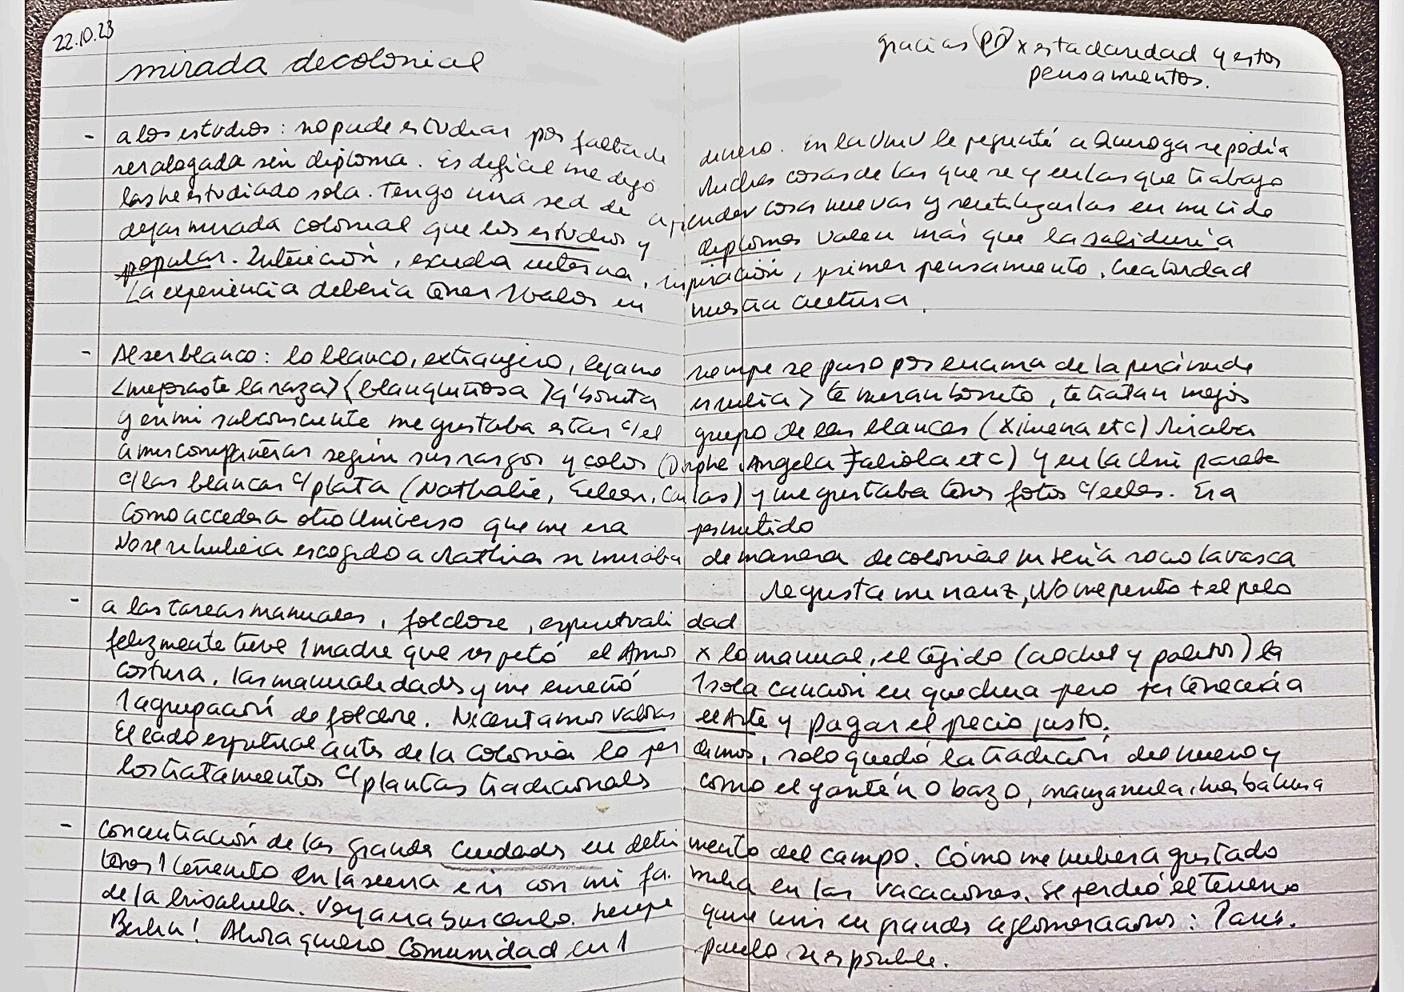 22.10.23
mirada decolonial
gracias PD x esta claridad y estos
pensamientos.
- a los estudios: no pude estudiar por falta de dinero. En la UMU le pregunté a Quiroga se podía
ser alogada sin diploma. Es dificil me dijo Muchas cosas de las que se y en las que trabajo
las he estudiado sola. Tengo una sed de aprender cosas nuevas y reutilizarlas en mi vida
dejar mirada colonial que los estudios y diplomas valen más que la sabiduria
popular. Intuición, escucha interna, inspiración, primer pensamiento, creatividad
La experiencia deberia tener 1 valor en nuestra cultura.
- Al ser blanco: lo blanco, extranjero, lejano siempre se puso por encima de la
<mejoraste la raza> <blanquiñosa> q' bonita > te miran bonito, te tratan mejor
y en mi subconsciente me gustaba estar c/ el grupo de las blancas (Ximena etc) Miraba
a mis compañeras según sus rasgos y color (Angela Fabiola etc) y en la Uni paraba
c/ las blancas c/ plata (Nathalie, Eileen, Carlas) y me gustaba tener fotos c/ ellos. Era
como acceder a otro Universo que me era permitido
No se si hubiera escogido a si miraba de manera decolonial ni seria socio la vasca
Me gusta mi nariz, No me pinto + el pelo
- a las tareas manuales, folclore, espiritualidad
felizmente tuve 1 madre que respetó el Amor x lo manual, el tejido (crochet y palitos) la
costura, las manualidades y me enseñó 1 sola canción en quechua pero pertenecía a
1 agrupación de folclore. Necesitamos valorar el Arte y pagar el precio justo.
El lado espiritual antes de la colonia lo perdimos, solo quedó la tradición del huevo y
los tratamientos c/ plantas tradicionales como el 0 bazo, manzanilla, hierba luisa
- Concentración de las grandes ciudades en detrimento del campo. Cómo me hubiera gustado
tener 1 terrenito en la sierra e ir con mi familia en las vacaciones. Se perdió el terreno
de la bisabuela. Voy a ir a buscarlo. Siempre quise vivir en grandes aglomeraciones: Paris.
Berlin! Ahora quiero comunidad en 1 pueblo si es posible.